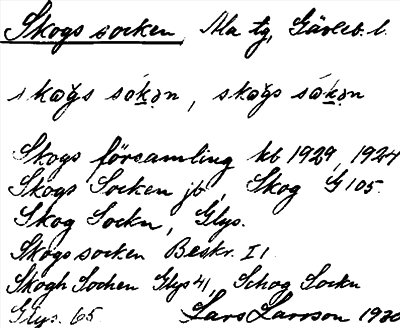 Skogs socken, Ala tg, Gävleb. l.
skoǧs sókən, skoǧs sókən
Skogs församling kb 1929, 1924
Skogs Socken jb, Skog G 105.
Skog Sockn, Glys.
Skogs socken Beskr. I 1
Skogh Sochen Glys 41, Schog Sockn
Glys. 65 Lars Larsson 1930